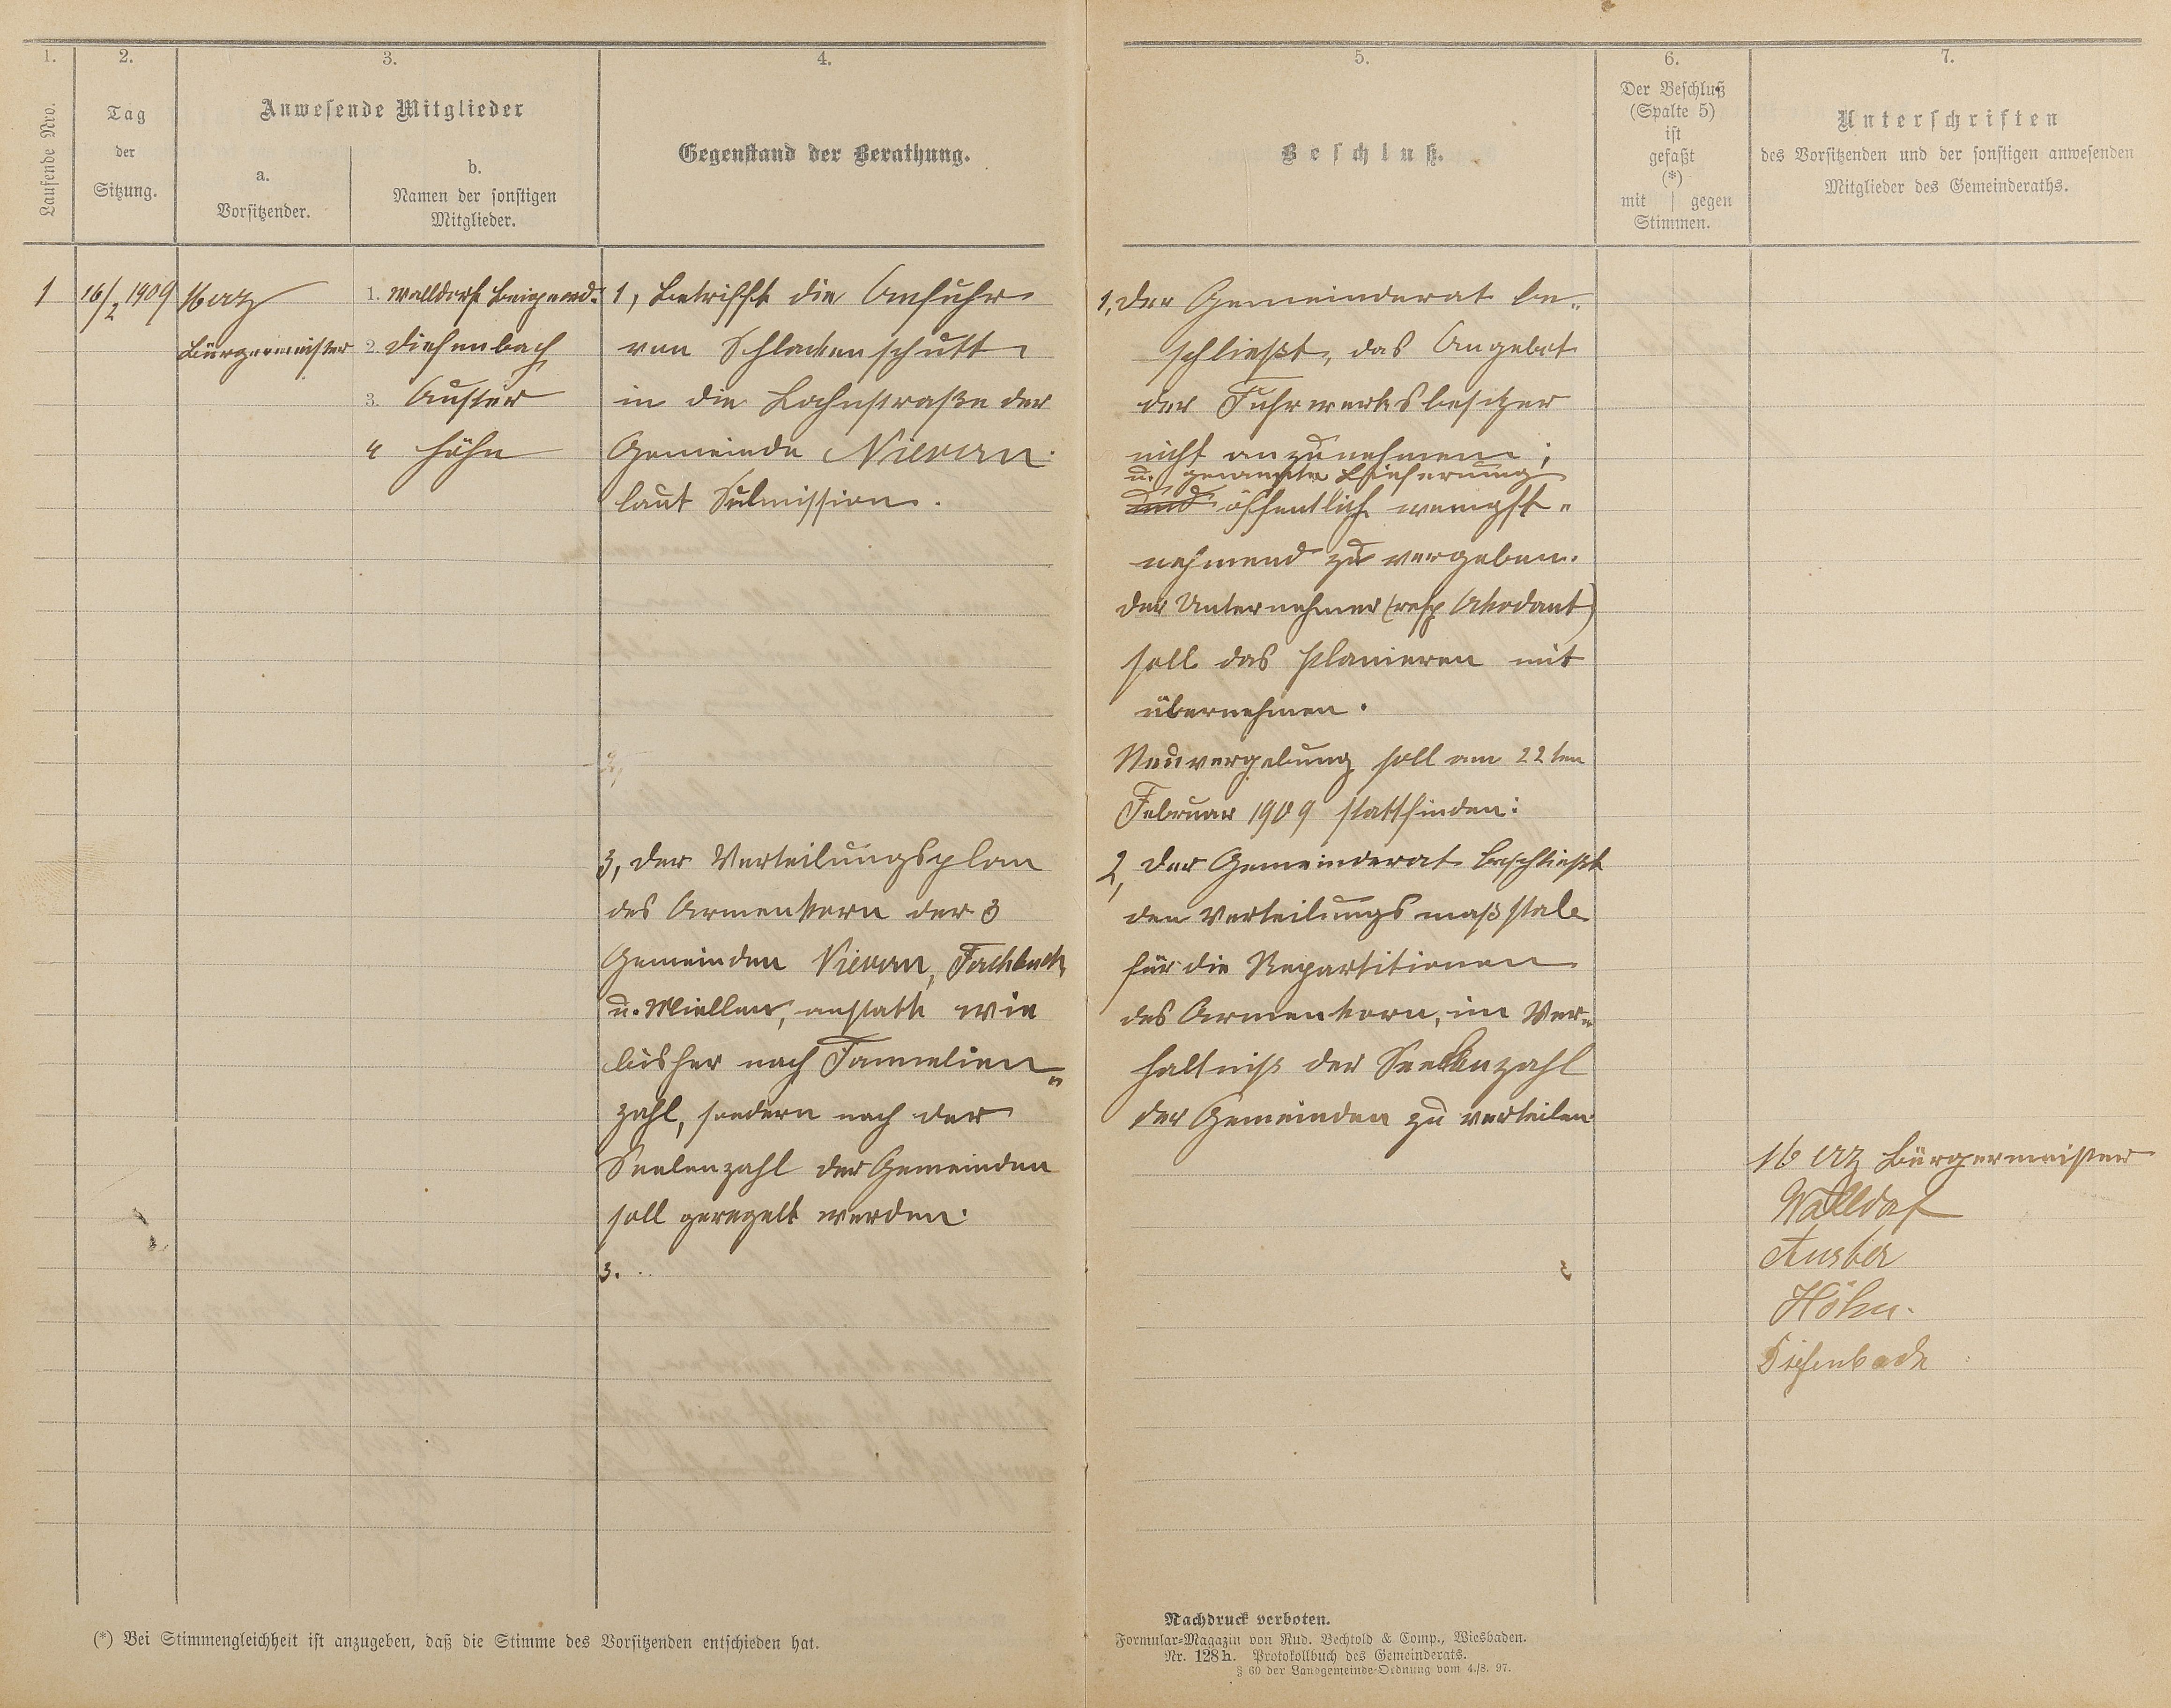 1.
Laufende Nro.
2.
Tag
der
Sitzung.
3.
Anwesende Mitglieder
a.
Vorsitzender.
b.
Namen der sonstigen
Mitglieder.
4.
Gegenstand der Berathung.
1
16/2 1909
Bürgermeister
1. Walldorf Beigeord.
2. Diefenbach
3. Auster
4 Höhn
1, Betrifft die Anfuhr
von Schlackenschutt
in die Lahnstraße der
Gemeinde Nievern
laut Submission.
3, Der Verteilungsplan
des Armenkorn der 3
Gemeinden Nievern, Fachbach
u. Miellen, anstatt wie
bisher nach Familien„
zahl, sondern nach der
Seelenzahl der Gemeinden
soll geregelt werden.
3.
(*) Bei Stimmengleichheit ist anzugeben, daß die Stimme des Vorsitzenden entschieden hat.
5.
Beschluß.
6.
Der Beschluß
(Spalte 5)
ist
gefaßt
(*)
mit | gegen
Stimmen.
7.
Unterschriften
des Vorsitzenden und der sonstigen anwesenden
Mitglieder des Gemeinderaths.
1, Der Gemeinderat be„
schließt, das Angebot
der Fuhrwerksbesitzer
nicht anzunehmen;
u. genannte Lieferung
und öffentlich wenigst„
nehmend zu vergeben.
Der Unternehmer (resp Akodant)
soll das Planieren mit
übernehmen.
Neuvergebung soll am 22ten
Februar 1909 stattfinden:
2, Der Gemeinderat beschließt
den Verteilungsmaßstab
für die Repartitionen
des Armenkorn, im Ver„
hältniß der Seelenzahl
der Gemeinden zu verteilen
Bürgermeister
Walldorf
Auster
Höhn.
Diefenbach
Nachdruck verboten.
Formular-Magazin von Rud. Bechtold & Comp., Wiesbaden.
Nr. 128h. Protokollbuch des Gemeinderats.
§ 60 der Landgemeinde-Ordnung vom 4./8. 97.